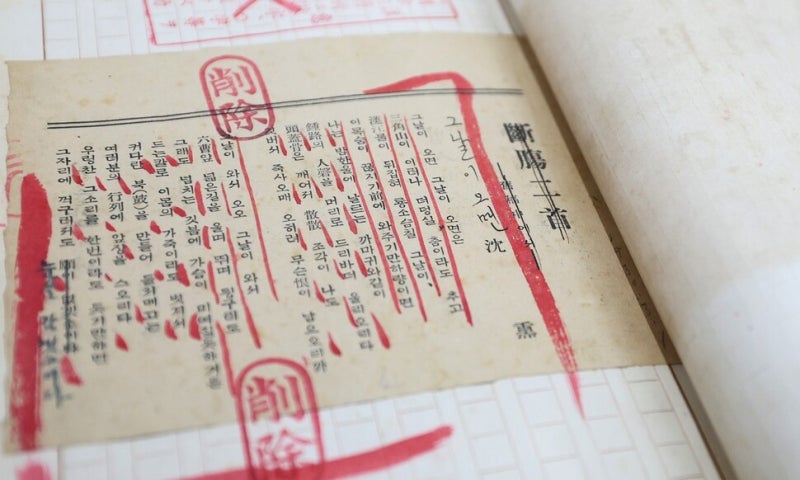 斷膓二首
그날이 오면
沈 熏
그날이 오면 그날이 오면은
三角山이 이러나 더덩실 춤이라도 추고
漢江물이 뒤집혀 룡소슴칠 그날이,
이목숨이 끊지기前에 와주기만하량이면
나는 밤한울에 날르는 까마귀와같이
鍾路의 人磬을 머리로 드리바더 울리오리다
頭蓋骨은 깨어저 散散 조각이 나도
깃버서 죽사오매 오히려 무슨恨이 남으오리까
그날이 와서 오오 그날이 와서
六曹앞 넓은길을 울며 뛰며 뒹구러도
그래도 넘치는 깃븜에 가슴이 미여질듯하거든
드는칼로 이몸의 가죽이라도 벗겨서
커다란 북(鼓)을 만들어 들쳐메고는
여러분의 行列에 앞장을 스오리다
우렁찬 그소리를 한번이라도 듯기만하면
그자리에 꺽구러저도
削除
削除